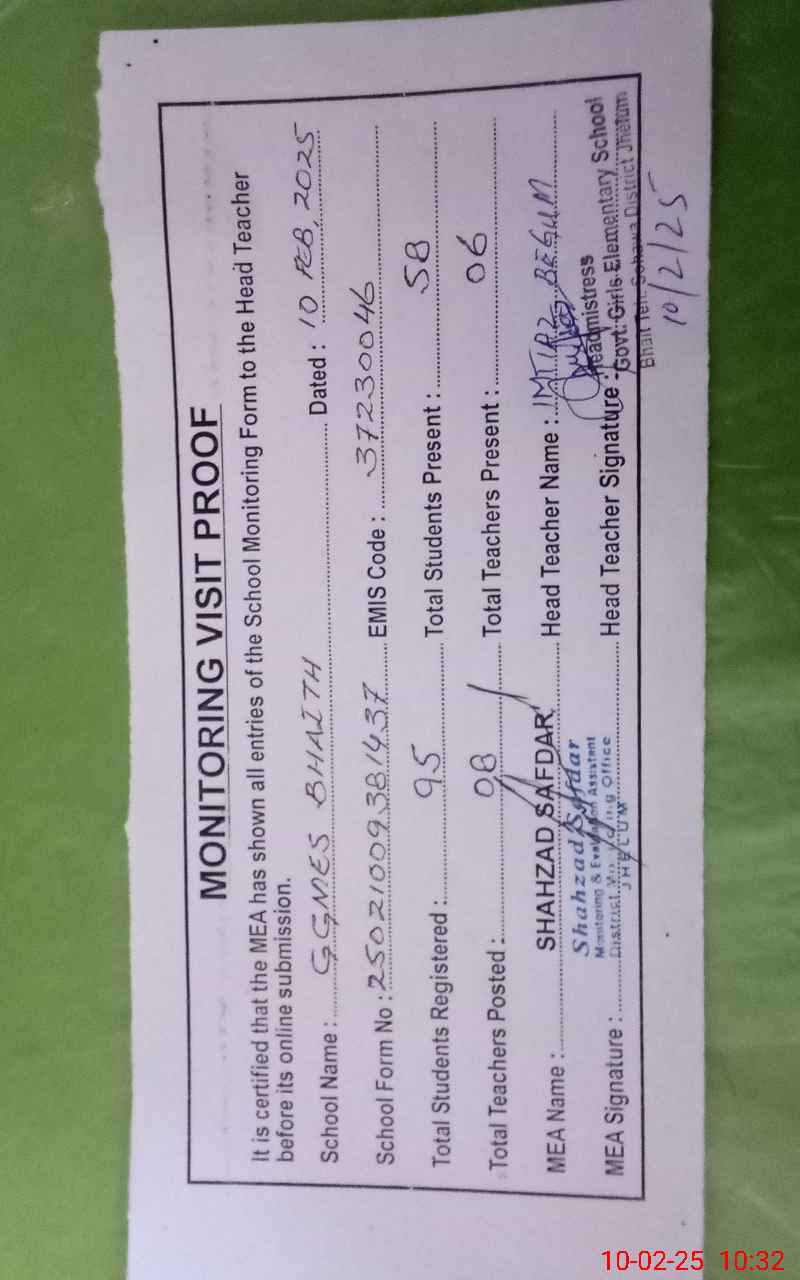 MONITORING VISIT PROOF
It is certified that the MEA has shown all entries of the School Monitoring Form to the Head Teacher
before its online submission.
School Name : GGMES BHAITH Dated : 10 FEB, 2025
School Form No : 25021009381437 EMIS Code : 37230046
Total Students Registered : 95 Total Students Present : 58
Total Teachers Posted : 08 Total Teachers Present : 06
MEA Name : SHAHZAD SAFDAR Head Teacher Name : IMTIAZ BEGUM
Shahzad Safdar
Monitoring & Evaluation Assistant
District Monitoring Office
JHELUM
MEA Signature : Head Teacher Signature :
Headmistress
Govt: Girls Elementary School
Bhait Teh: Sohawa District Jhelum
10/2/25
10-02-25 10:32